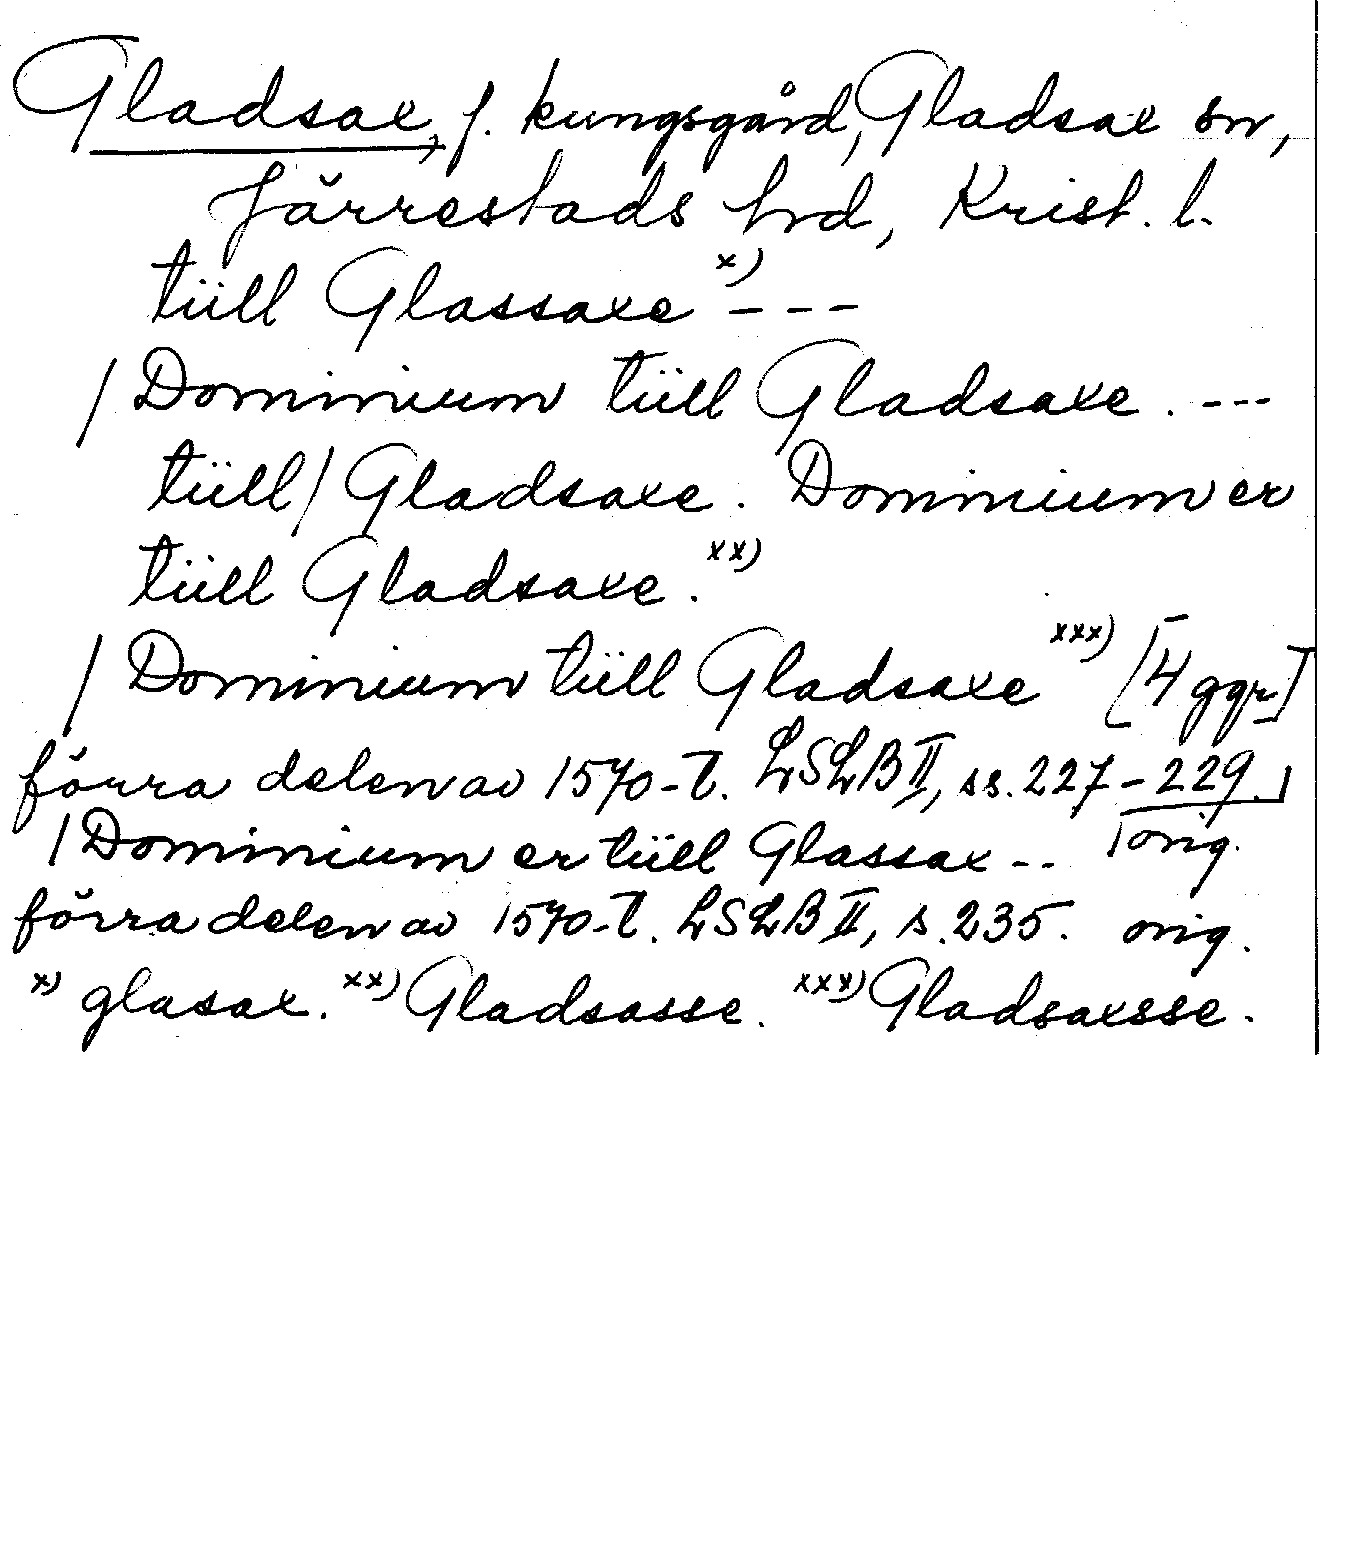 Gladsax, f. kungsgård, Gladsax sn,
Järrestads hrd, Krist. l.
tüll Glassaxe x) ---
/ Dominium tüll Gladsaxe. ---
tüll / Gladsaxe. Dominium er
tüll Gladsaxe. xx)
/ Dominium tüll Gladsaxe xxx) [4 ggr]
förra delen av 1570-t. LSLB II, ss. 227-229.
/ Dominium er tüll Glassax -- orig.
förra delen av 1570-t. LSLB II, s. 235. orig.
x) glasax. xx) Gladsasse. xxx) Gladsaxsse.